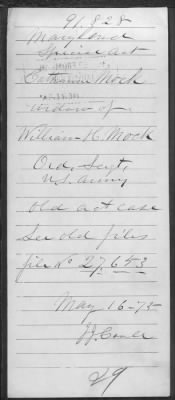 91.828
Maryland
Special Act
Catharine Mock
widow of
William H. Mock
Ord. Sergt,
U.S. Army
old act case
See old files
file No 27,653
May 16-72
29